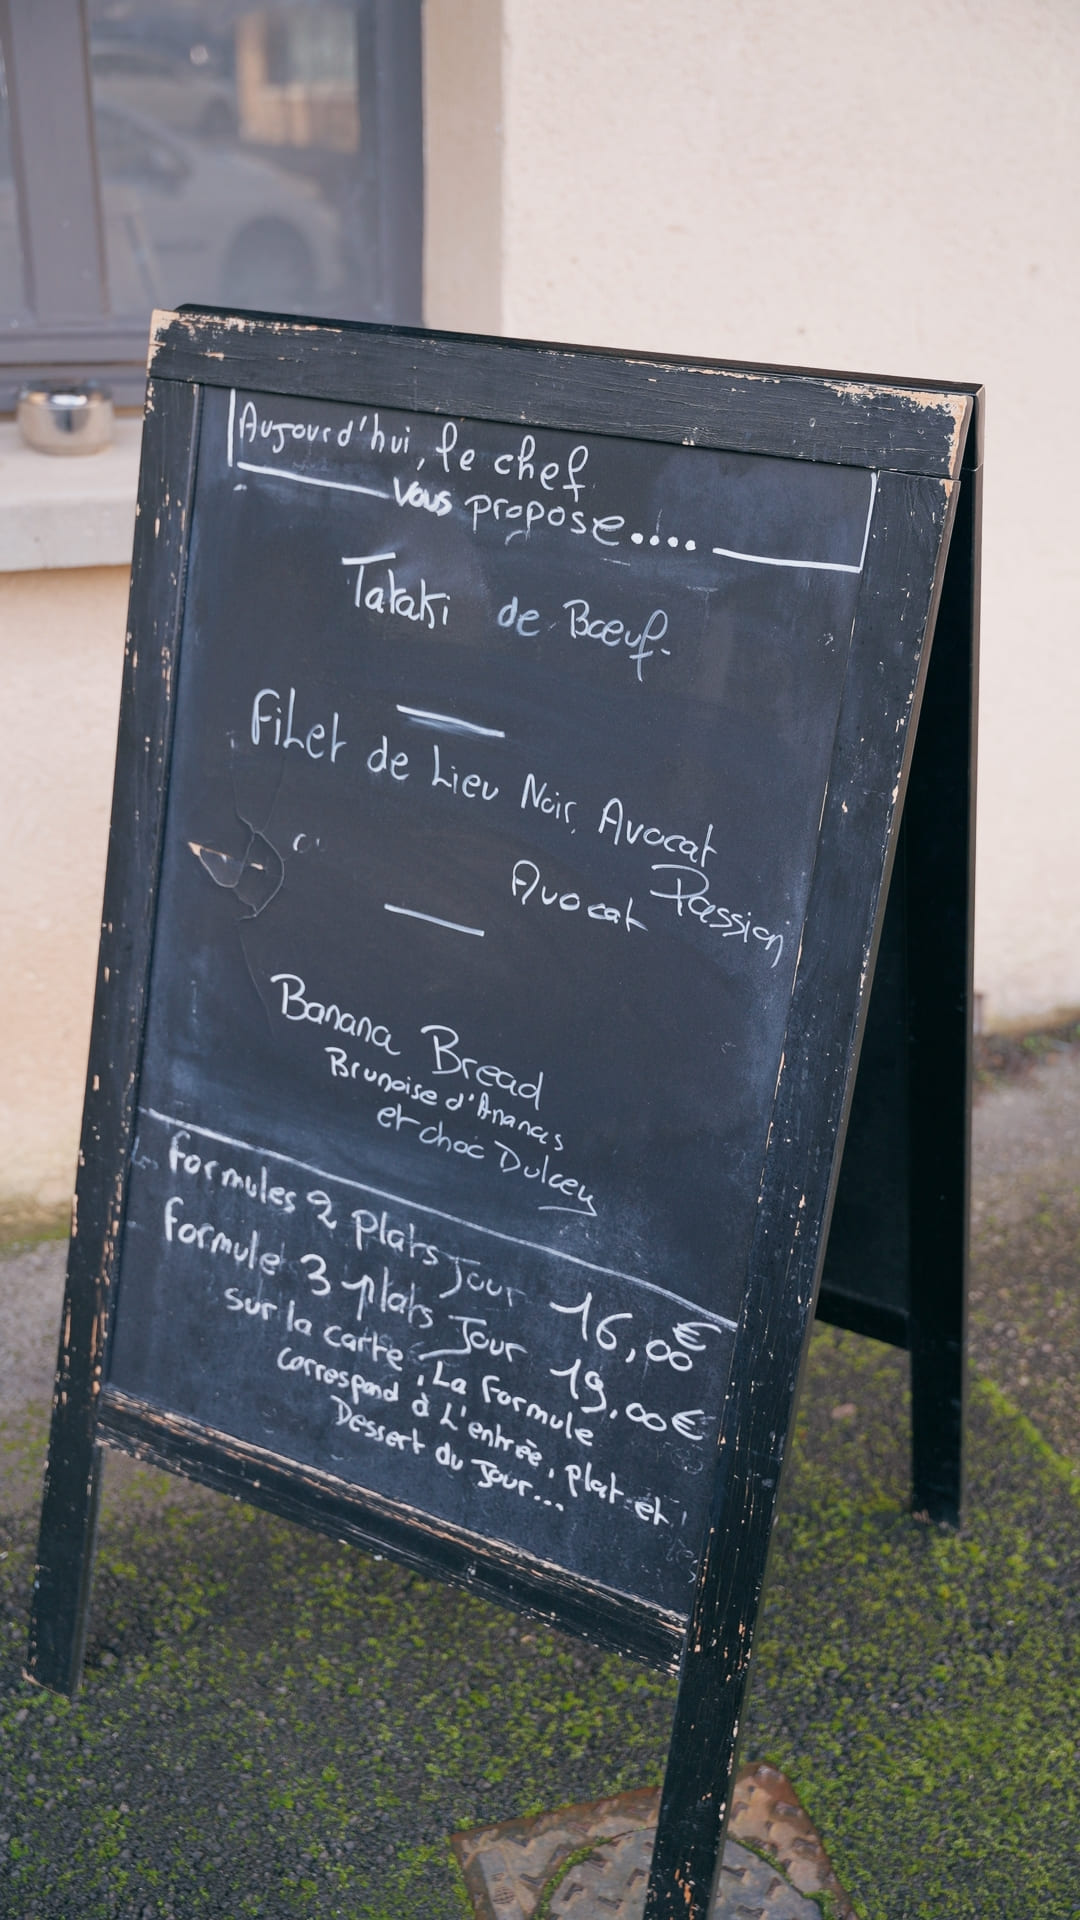 Aujourd'hui, le chef
vous propose....
Tataki de Bœuf.
Filet de Lieu Noir, Avocat
Passion
Avocat
Banana Bread
Brunoise d'Ananas
et choc Dulcey
Formules 2 plats Jour 16,00€
Formule 3 plats Jour 19.00€
sur la carte, La Formule
correspond à L'entrée, plat et
Dessert du Jour...